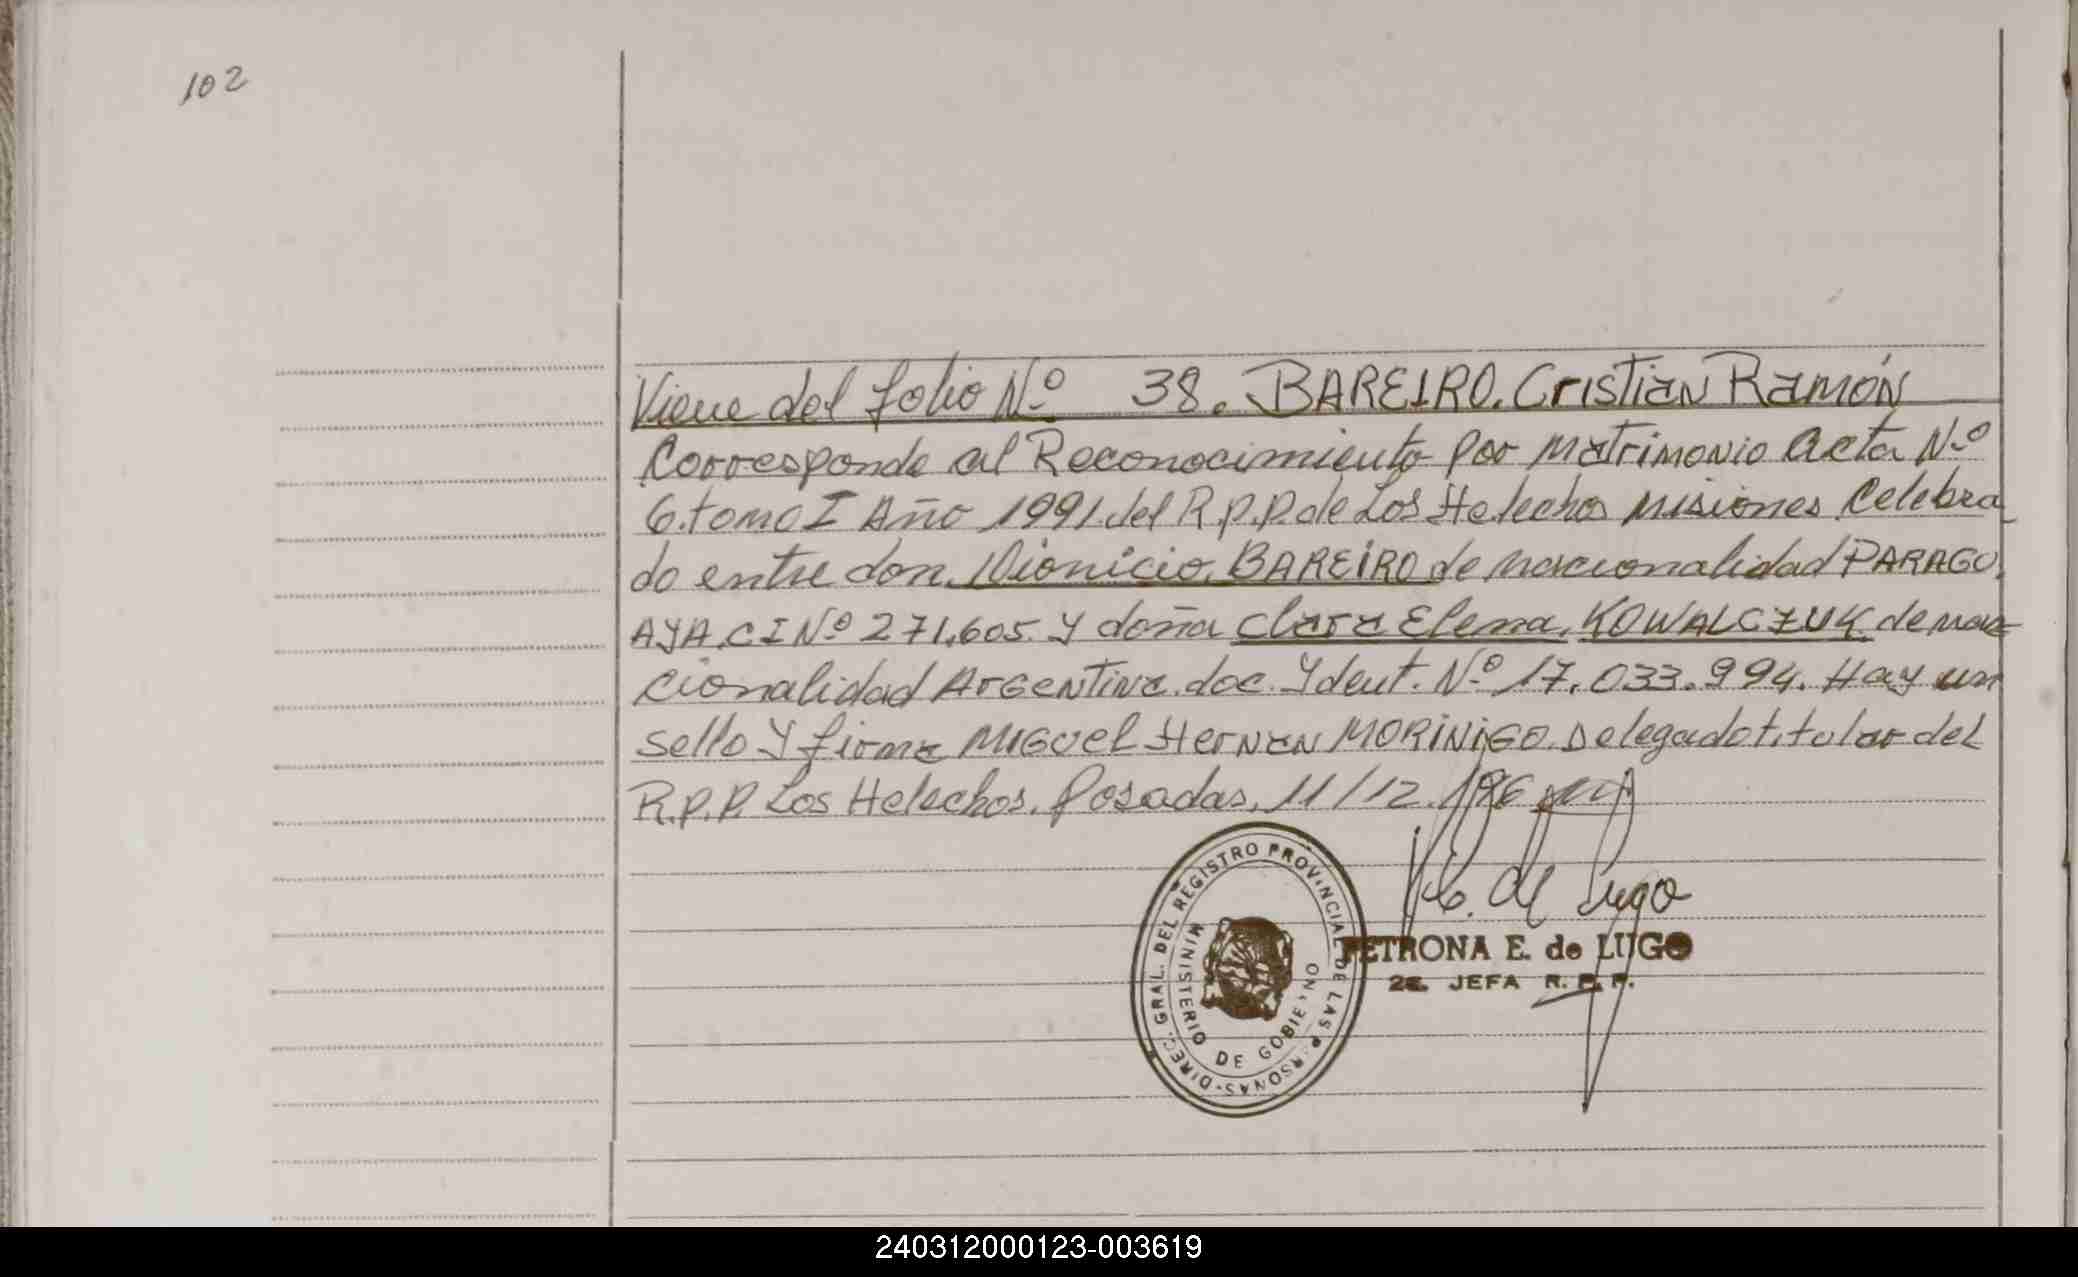 102
Viene del folio Nº 38. BAREIRO. Cristian Ramón
Corresponde al Reconocimiento por matrimonio acta Nº
6. tomo I Año 1991. del R.p.p. de Los Helecho misiones Celebra
do entre don. Dionicio. BAREIRO de nacionalidad PARAGU.
AYA. CI Nº 271.605. Y doña Clara Elena. KOWALCZUK de na
cionalidad Argentina. doc. Ydent. Nº 17.033.994. Hay un
sello Y firma MIGUEL HERNAN MORINIGO. Delegado titular del
R.P.P. Los Helechos. Posadas, 11/12
de Lugo
PETRONA E. de LUGO
JEFA R. P. P.
DIREC. GRAL. DEL REGISTRO PROVINCIAL DE LAS P RSONAS-
MINISTERIO DE GOBIERNO
240312000123-003619